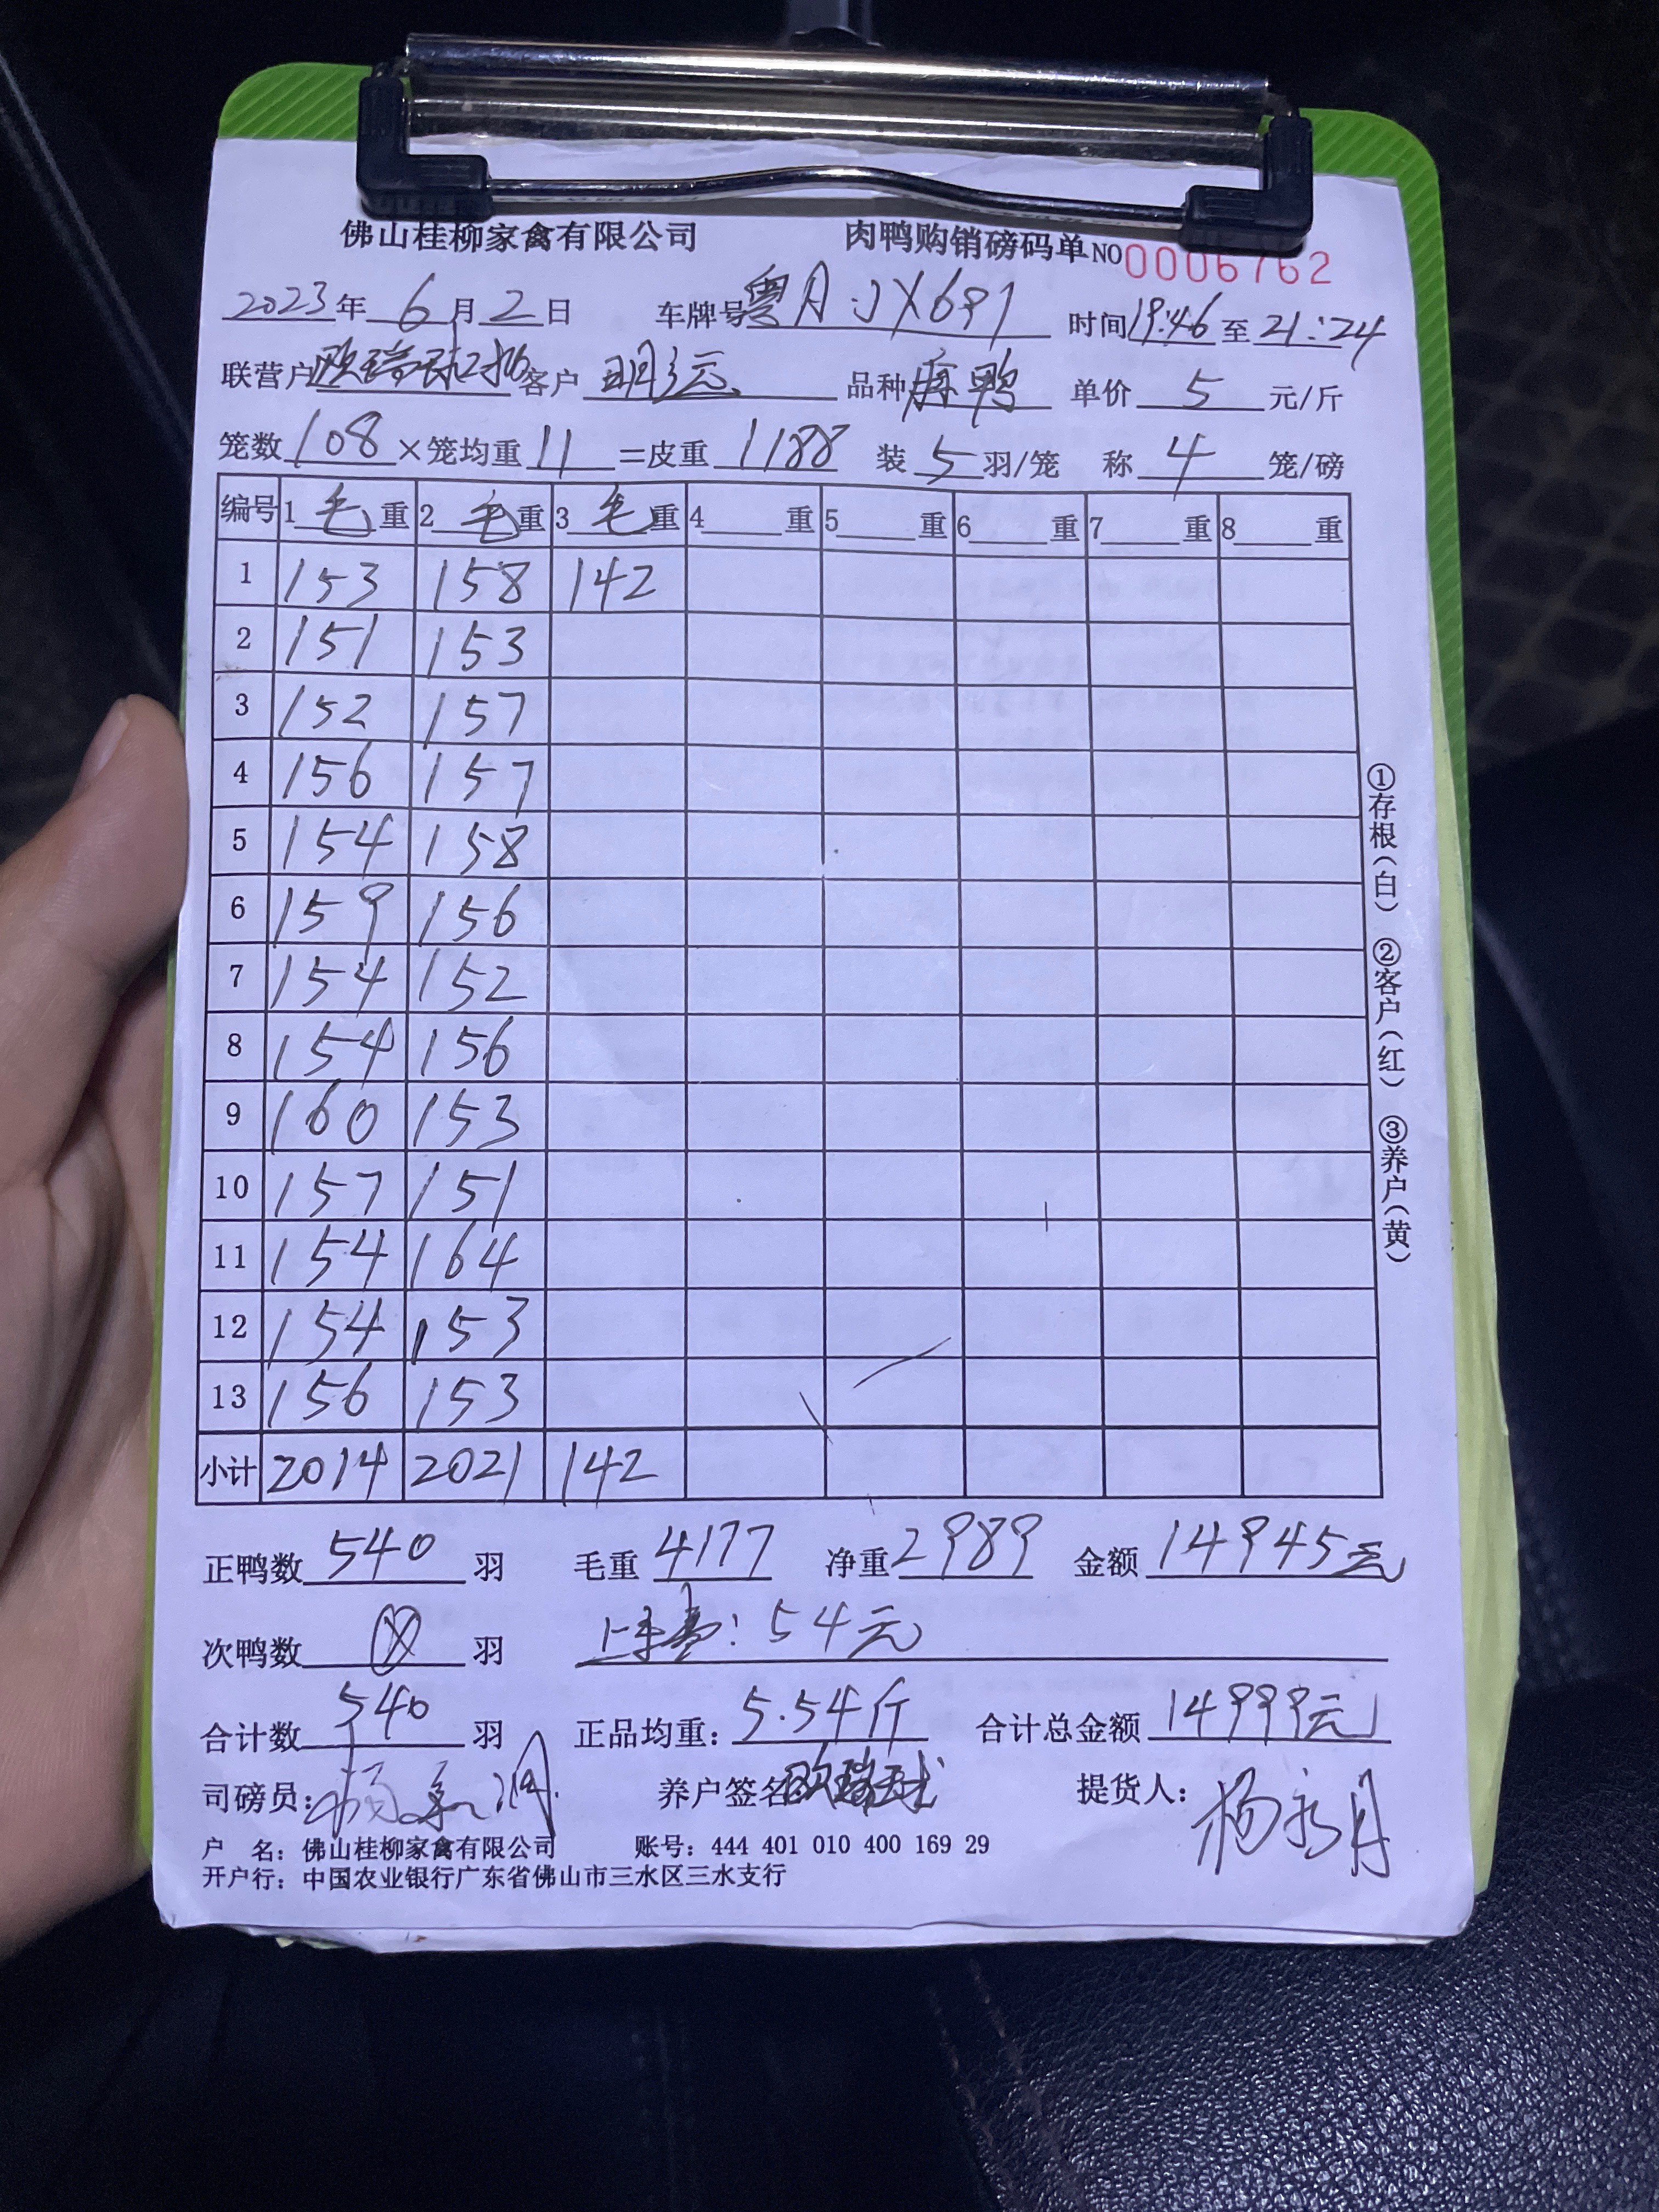 佛山桂柳家禽有限公司 肉鸭购销磅码单NO0006762
2023年6月2日 车牌号 时间19:46至21:24
联营户 客户 品种麻鸭 单价5元/斤
笼数108×笼均重11=皮重1188 装5羽/笼 称4笼/磅
编号 1毛重 2毛重 3毛重 4重 5重 6重 7重 8重
1 153 158 142
2 151 153
3 152 157
4 156 157
5 154 158
6 159 156
7 154 152
8 154 156
9 160 153
10 157 151
11 154 164
12 154 153
13 156 153
小计 2014 2021 142
①存根(白) ②客户(红) ③养户(黄)
正鸭数540羽 毛重4177 净重2989 金额14945元
次鸭数羽 上车费:54元
合计数540羽 正品均重:5.54斤 合计总金额14999元
司磅员: 养户签名 提货人:
户 名:佛山桂柳家禽有限公司 账号:444 401 010 400 169 29
开户行:中国农业银行广东省佛山市三水区三水支行